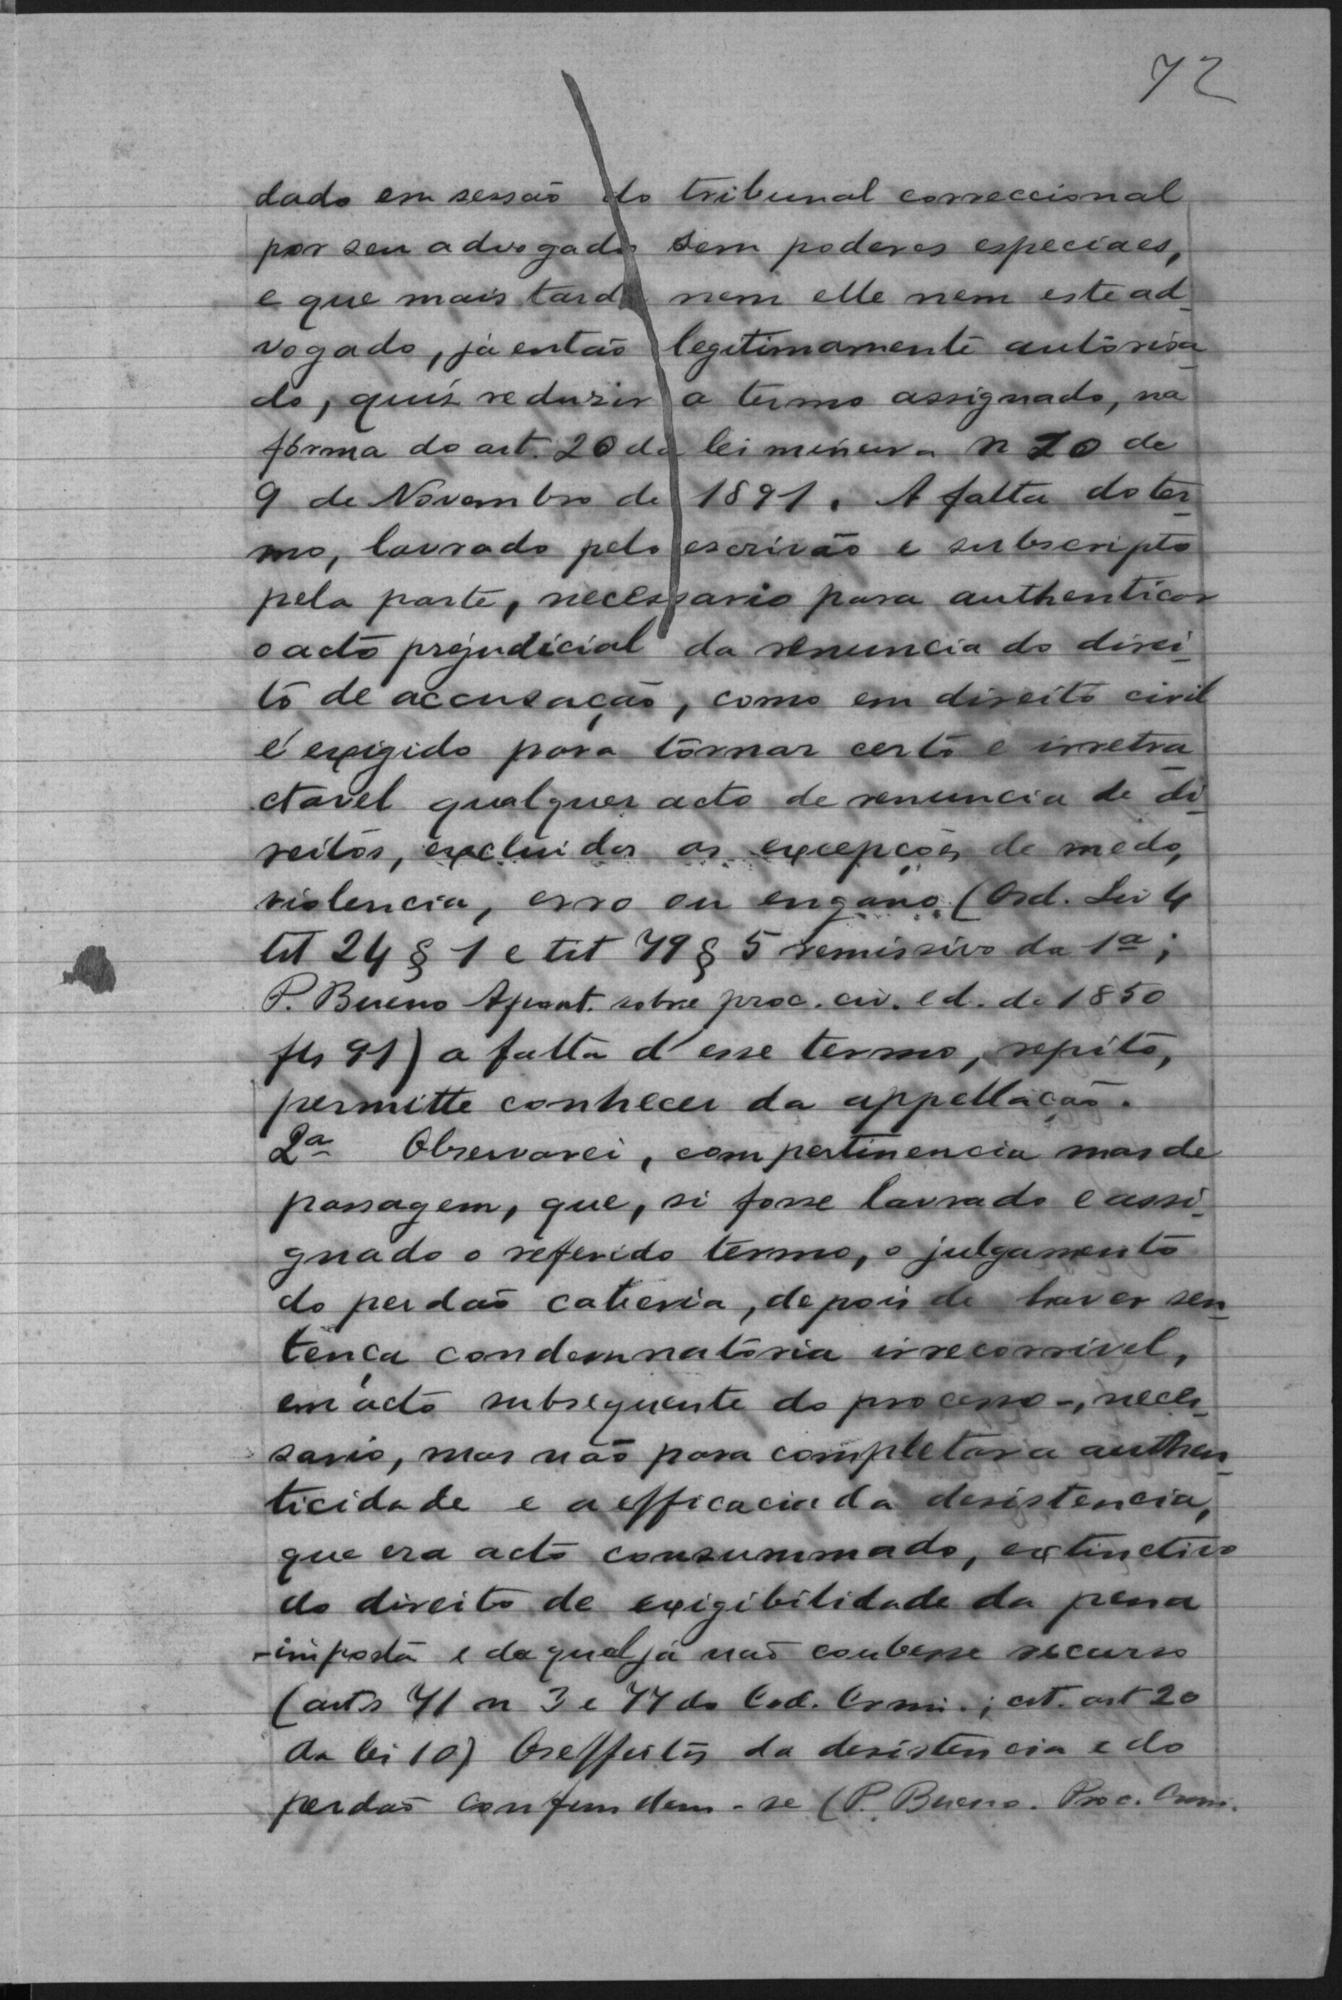 72
dado em sessão do tribunal correccional
por seu advogado sem poderes especiaes,
e que mais tarde nem elle nem este ad-
vogado, já então legitimamente autorisa-
do, quis reduzir a termo assignado, na
fórma do art. 20 da lei mineira n 10 de
9 de Novembro de 1891. A falta do ter-
mo, lavrado pelo escrivão e subscripto
pela parte, necessario para authenticar
o acto prejudicial da renuncia do direi-
to de accusação, como em direito civil
é exigido para tornar certo e irretra-
ctavel qualquer acto de renuncia de di-
reitos, excluidas as excepções de medo,
violencia, erro ou engano (Ord. Liv 4
tit 24 § 1 e tit 79 § 5 remissivo da 1ª;
P. Bueno Apont. sobre proc. civ. ed. de 1850
fls 91) a falta d'esse termo, repito,
permitte conhecer da appellação.
2ª Observarei, com pertinencia mas de
passagem, que, si fosse lavrado e assi-
gnado o referido termo, o julgamento
do perdão caberia, depois de haver sen-
tença condemnatoria irrecorrivel,
em acto subsequente do processo -, neces-
sario, mas não para completar a authen-
ticidade e a efficacia da desistencia,
que era acto consummado, extinctivo
do direito de exigibilidade da pena
imposta e da qual já não coubesse recurso
(arts 71 n 3 e 77 do Cod. Crim.; cit. art 20
da lei 10) Os effeitos da desistencia e do
perdão confundem-se (P. Bueno. Proc. Crim.